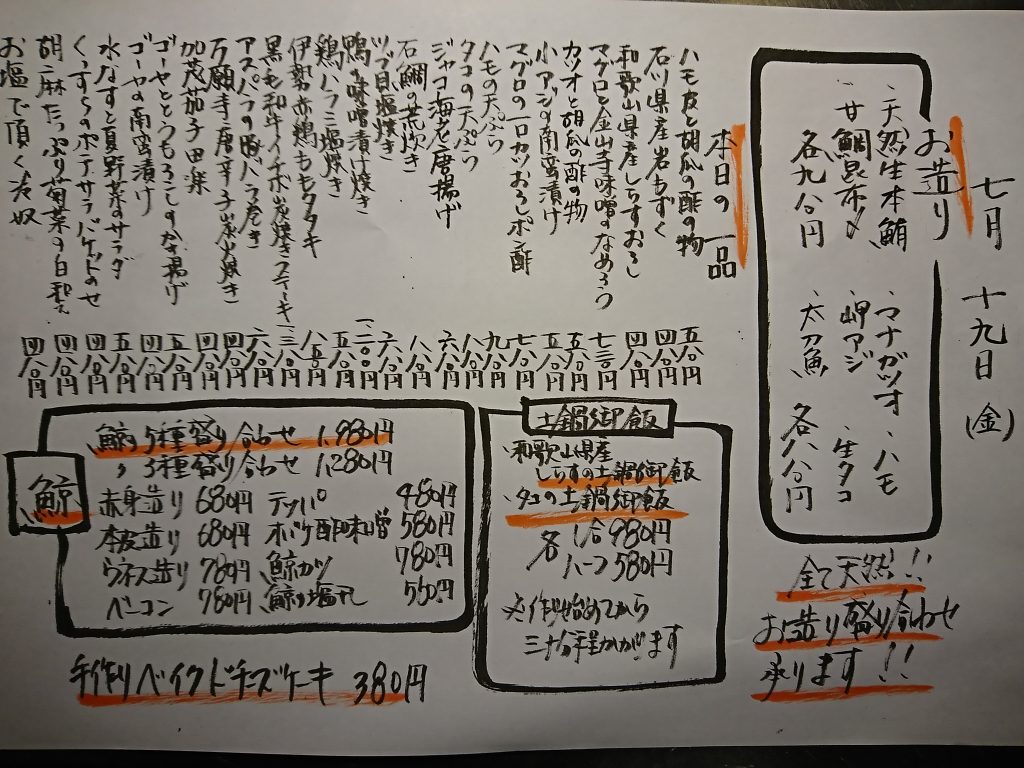 七月 十九日 (金)
お造り
・天然生本鮪 ・マナガツオ ・ハモ
・甘鯛昆布〆 ・岬アジ ・生タコ
各九八〇円 ・太刀魚 各八八〇円
全て天然!!
お造り盛り合わせ
承ります!!
本日の一品
ハモ皮と胡瓜の酢の物 五八〇円
石川県産岩もずく 四八〇円
和歌山県産しらすおろし 四八〇円
マグロと金山寺味噌のなめろう 七三〇円
カツオと胡瓜の酢の物 五八〇円
小アジの南蛮漬け 五八〇円
マグロの一口カツおろしポン酢 七八〇円
ハモの天ぷら 九八〇円
タコの天ぷら 八八〇円
ジャコ海老唐揚げ 六八〇円
石鯛の荒炊き 八八〇円
ツブ貝塩焼き 六八〇円
鴨の味噌漬け焼き 一、二〇〇円
鶏ハラミ塩焼き 五八〇円
伊勢赤鶏ももタタキ 八五〇円
黒毛和牛イチボ炭焼きステーキ 一、三八〇円
アスパラの豚バラ巻き 六八〇円
万願寺唐辛子炭火焼き 四八〇円
加茂茄子田楽 四八〇円
ゴーヤととうもろこしのかき揚げ 五八〇円
ゴーヤの南蛮漬け 四八〇円
水なすと夏野菜のサラダ 五八〇円
ポテサラバケットのせ 四八〇円
胡麻たっぷり菊菜の白和え 四八〇円
お塩で頂く冷奴 四八〇円
土鍋御飯
・和歌山県産
しらすの土鍋御飯
・タコの土鍋御飯
各 1合980円
ハーフ580円
※作り始めてから
三十分程かかります
鯨
・鯨5種盛り合わせ 1,980円
〃 3種盛り合わせ 1,280円
赤身造り 680円 テッパ 480円
本皮造り 680円 オバケ酢味噌 580円
ウネス造り 780円 鯨カツ 780円
ベーコン 780円 鯨の塩ユデ 580円
手作りベイクドチーズケーキ 380円